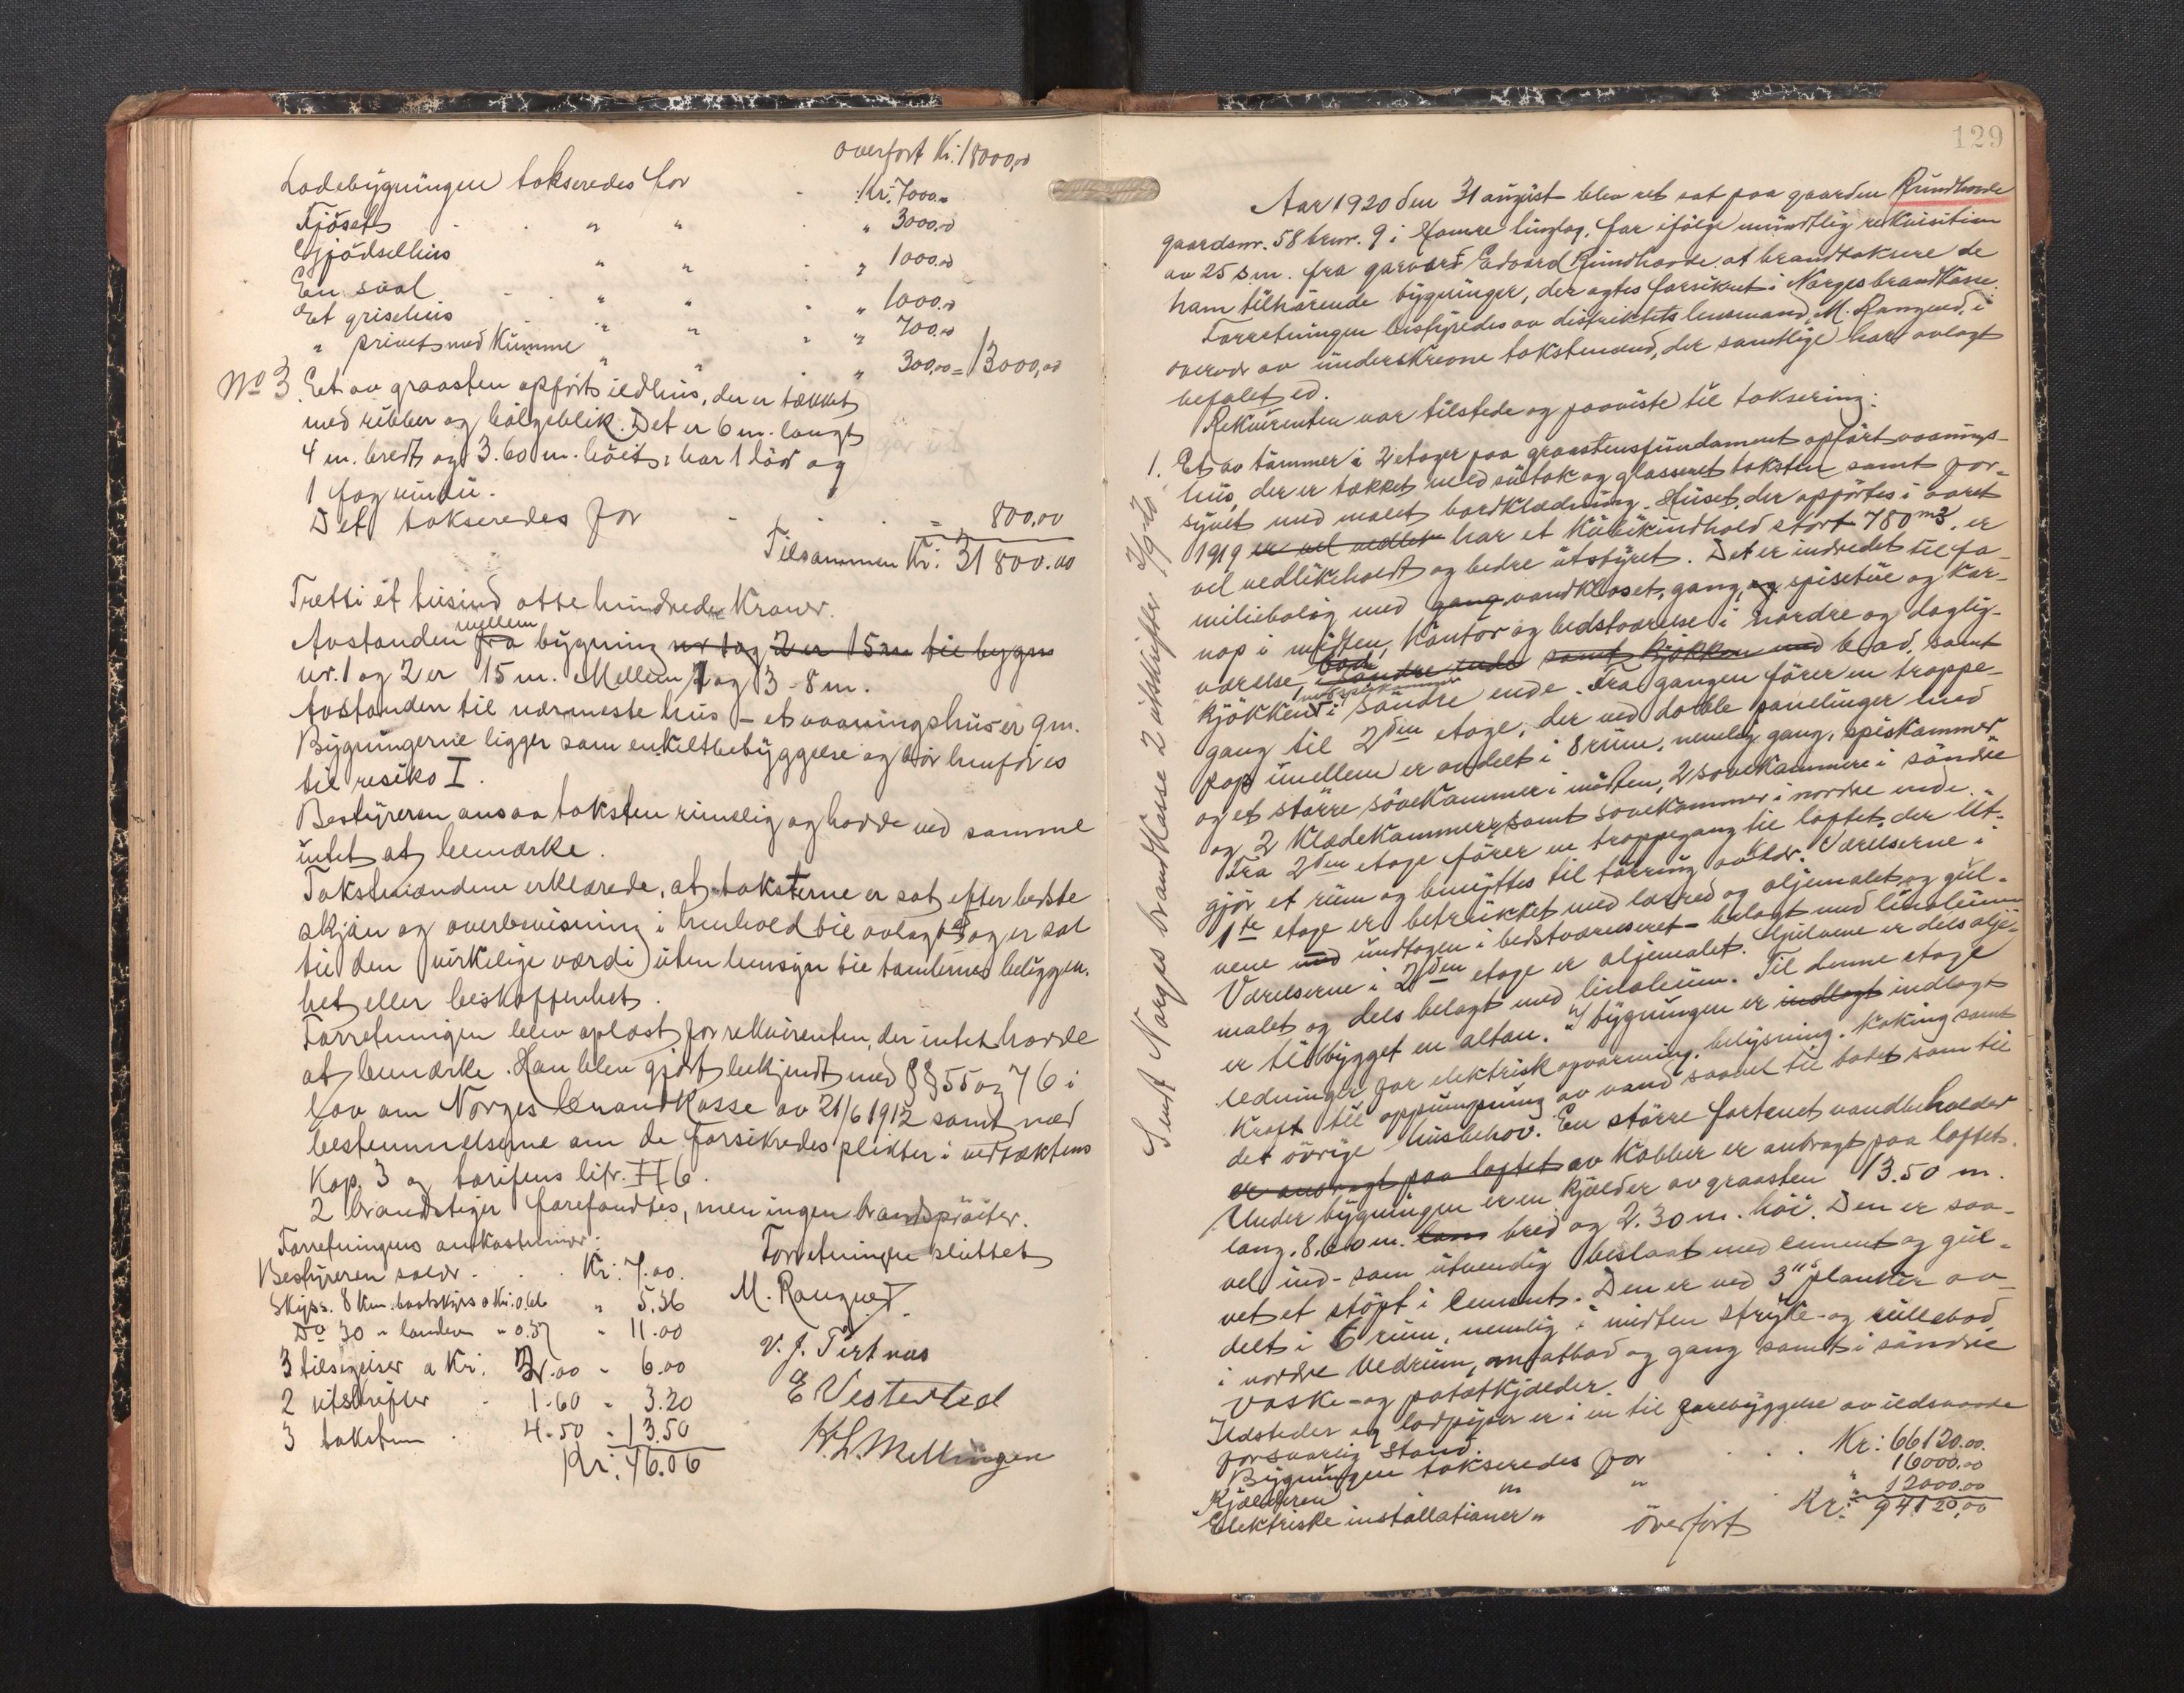 overført Kr. 18000,00
Ladebygningen takseredes for - Kr: 7000.00
Fjöset . . " " . " 3000.00
Gjödselhus " " . " 1000.00
En sval . . " " . " 1000.00
Et grisehus " " . " 700.00
" privet med Kumme " " . " 300,00 = 13000,00
No 3. Eet av graasten opført ildhus, der er tækket
med ribber og bølgeblik. Det er 6 m. langt
4 m. bredt og 3.60 m. höit, har 1 dör og
1 fag vindu.
Det takseredes for - . . = 800,00
Tilsammen Kr: 31 800.00
Tretti ét tusind otte hundrede Kroner.
Avstanden fra mellem bygning nr 1 og 2 er 15 m til bygn
nr. 1 og 2 er 15 m. Mellem 1 og 3 - 8 m.
Avstanden til nærmeste hus - et vaaningshus er 9 m.
Bygningerne ligger som enkeltbebyggelse og bör henföres
til resiko I.
Bestyreren ansaa taksten rimelig og hadde ved samme
intet at bemærke.
Takstmændene erklærede, at taksterne er sat efter bedste
skjön og overbevisning i henhold til avlagt ed og er sat
til den virkelige værdi uten hensyn til tomternes beliggen-
het eller beskaffenhet.
Forretningen blev oplæst for rekvirenten, der intet havde
at bemærke. Han blev gjort bekjendt med §§ 55 og 76 i
lov om Norges Brandkasse av 21/6 1912 samt med
bestemmelserne om de forsikredes plikter i vedtæktens
Kap. 3 og tarifens litr. II 6.
2 brandstiger forefandtes, men ingen brandspröiter.
Forretningens omkostninger.
Forretningen sluttet
Bestyreren salær . . . Kr: 7.00.
M. Rangned.
Skyss. 8 Km. baatskyss a Kr. 0.66 " 5.36
Do 30 " landev " 0.37 " 11.00
V. J. Tertnæs
3 tilsigelser a Kr. 2.00 " 6.00
2 utskrifter - 1.60 " 3.20
E Vesterled
3 takstm . 4.50 " 13.50
K. L. Mellingen
Kr: 46.06
129
Aar 1920 den 31 august blev ret sat paa gaarden Rundhovde
gaardsnr. 58 brnr. 9 i Hamre tinglag, for ifölge mundtlig rekvisition
av 25 s.m. fra garver Edvard Rundhovde at brandtaksere de
ham tilhörende bygninger, der agtes forsikret i Norges brandkasse.
Forretningen bestyredes av distriktets lensmand, M. Rangned, i
overvær av underskrevne takstmænd, der samtlige har avlagt
befalet ed.
Rekvirenten var tilstede og paaviste til taksering:
1. Et av tömmer i 2 etager paa graastensfundament opfört vaanings-
hus, der er tækket med sutak og glasseret taksten samt for-
synet med malet bordklædning. Huset, der opförtes i aaret
1919 er vel vedlik har et kubikindhold stort 780 m3, er
vel vedlikeholdt og bedre utstyret. Det er indredet til fa-
miliebolig med gang vandkloset, gang, og spisetue og kor-
nap i midten, Kontor og bedstværelse i nordre og daglig-
værelse, bad söndre ende samt kjökken med bad, samt
kjökken i söndre ende. Fra gangen förer en trappe-
gang til 2den etage, der ved doble panelinger med
pap imellem er avdelt i 8 rum, nemlig gang, spiskammer
og et större sövekammer i midten, 2 sovekammere i söndre
og 2 klædekammere, samt sovekammer i nordre ende.
Fra 2den etage förer en trappegang til loftet, der ut-
gjör et rum og benyttes til törring av klær. Værelserne i
1te etage er betrukket med lærred og oljemalet og gul-
vene med undtagen i bedstværelset - belagt med linoleum
Værelserne i 2den etage er oljemalet. Gulvene er dels olje-
malet og dels belagt med linoleum. Til denne etage
er tilbygget en altan. I bygningen er indlagt indlagt
ledninger for elektrisk opvarming, belysning, kokning samt
kraft til oppumpning av vand saavel til badet som til
det övrige husbehov. En större fortenet vandbeholder
er anbragt paa loftet av kobber er anbragt paa loftet.
Under bygningen er en kjælder av graasten 13.50 m.
lang, 8.00 m. lang bred og 2.30 m. höi. Den er saa-
vel ind- som utvendig beslaat med cement og gul-
vet et stöpt i cement. Den er ved 3" planker av-
delt i 6 rum, nemlig i midten stryke- og rullebod
i nordre vedrum, matbod og gang samt i söndre
vaske- og potetkjælder.
Ildsteder og lodpiper er i en til forebyggelse av ildsvaade
forsvarlig stand.
Bygningen takseredes for . . . Kr: 66120.00.
Kjælderen " " " 16000.00
Elektriske installationer " " 12000.00
överfört Kr: 94120,00
Sendt Norges brandkasse 2 utskrifter